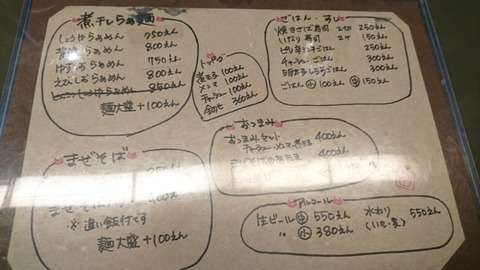 煮干しらぁ麺
しょうゆらぁめん 750えん
らぁめん 800えん
ゆずしおらぁめん 750えん
えびしおらぁめん 800えん
らぁめん 850えん
麺大盛 +100えん
トッピング
煮玉子 100えん
メンマ 100えん
チャーシュー 100えん
全のせ 360えん
ごはん・すし
焼きさば寿司 2切 250えん
いなり寿司 2ケ 150えん
ごはん 250えん
チャーシューごはん 300えん
明太子しらすごはん 300えん
ごはん 小 100えん 中 150えん
おつまみ
おつまみセット 400えん
チャーシュー・メンマ・煮玉子
400えん
まぜそば
まぜそば
※ 追い飯付です
麺大盛 +100えん
アルコール
生ビール 中 550えん
〃 小 380えん
水わり 550えん
(いも・麦)